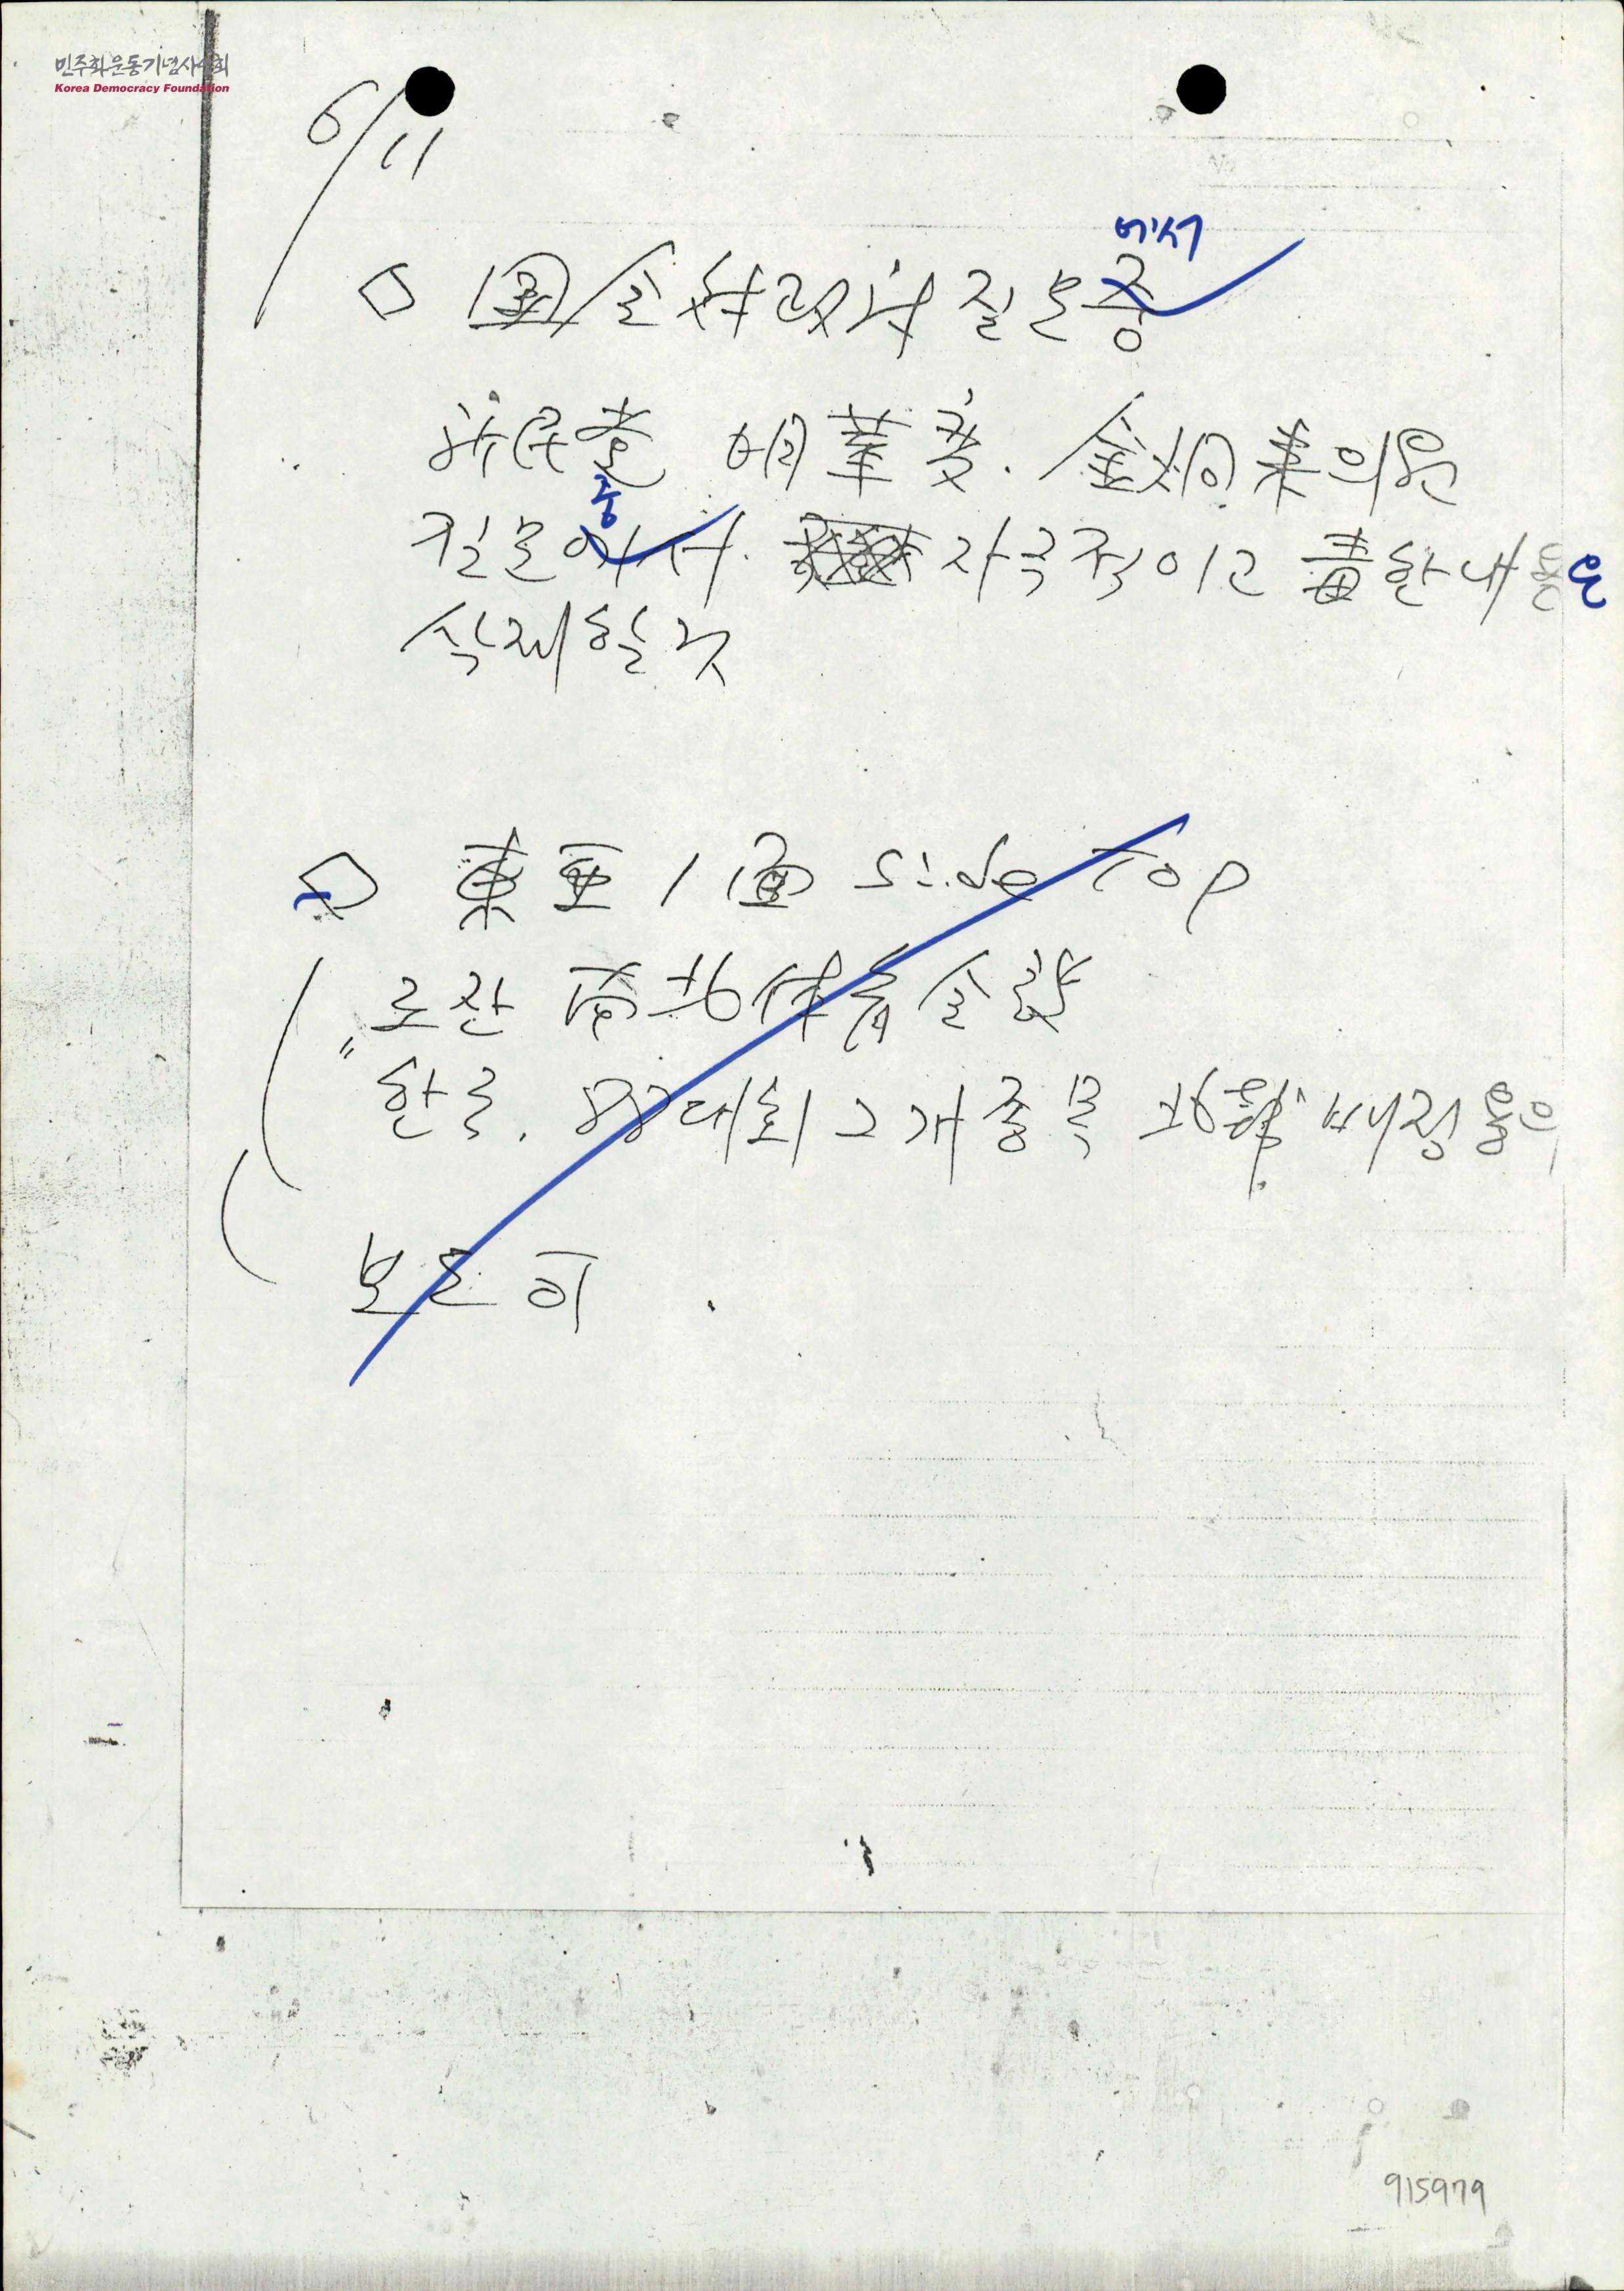 민주화운동기념사업회
Korea Democracy Foundation
6/11
에서
□ 國会 対政府 질문중
新民党 明華燮. 金炯来 의원
중
질문에서. 자극적이고 毒한 내용은
삭제할 것
□ 東亜 1面 side Top
로잔 南北体育会談
"한국, 88대회 2개 종목 北韓" 배정용의
보도 可
915979